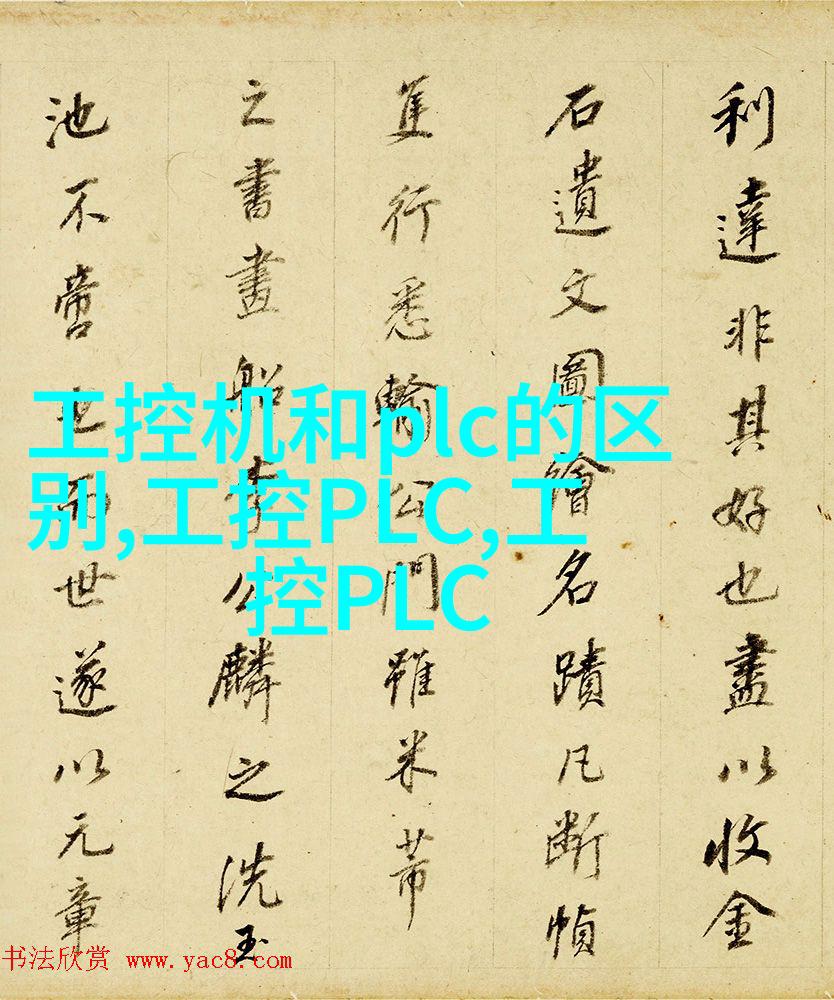 利達非其好也盡以收金
石遺文圖繪名蹟凡斷幀
隻行悉輸公門雖米芾
之書畫船李公麟之洗玉
池不啻也而世遂以元章
工控机和plc的区
别,工控PLC,工
控PLC
书法欣赏 www.yac8.com